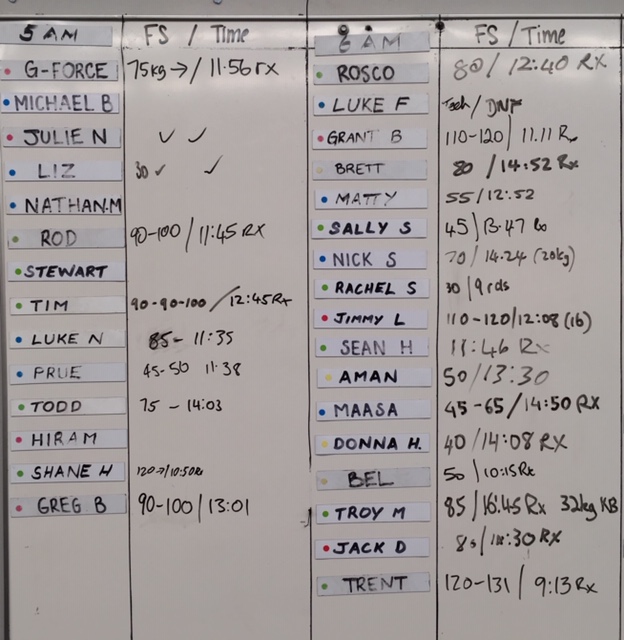 5 AM FS / Time
G-FORCE 75kg → / 11.56 rx
MICHAEL B
JULIE N ✓ ✓
LIZ 30 ✓ ✓
NATHAN.M
ROD 90-100 / 11:45 RX
STEWART
TIM 90-90-100 / 12:45 Rx
LUKE N 85- 11:35
PRUE 45-50 11.38
TODD 75 - 14:03
HIRAM
SHANE H 120→/10:50Rx
GREG B 90-100 / 13:01
6 AM FS / Time
ROSCO 80 / 12:40 RX
LUKE F Tech / DNF
GRANT B 110-120 / 11.11 Rx
BRETT 80 / 14:52 Rx
MATTY 55 / 12:52
SALLY S 45 / 13.47
NICK S 70 / 14.24 (20kg)
RACHEL S 30 / 9 rds
JIMMY L 110-120/12:08 (16)
SEAN H 11:46 Rx
AMAN 50 / 13:30
MAASA 45-65 / 14:50 RX
DONNA H. 40 / 14:08 RX
BEL 50 / 10:15 Rx
TROY M 85 / 16.45 Rx 32kg KB
JACK D :30 RX
TRENT 120-131 / 9:13 Rx